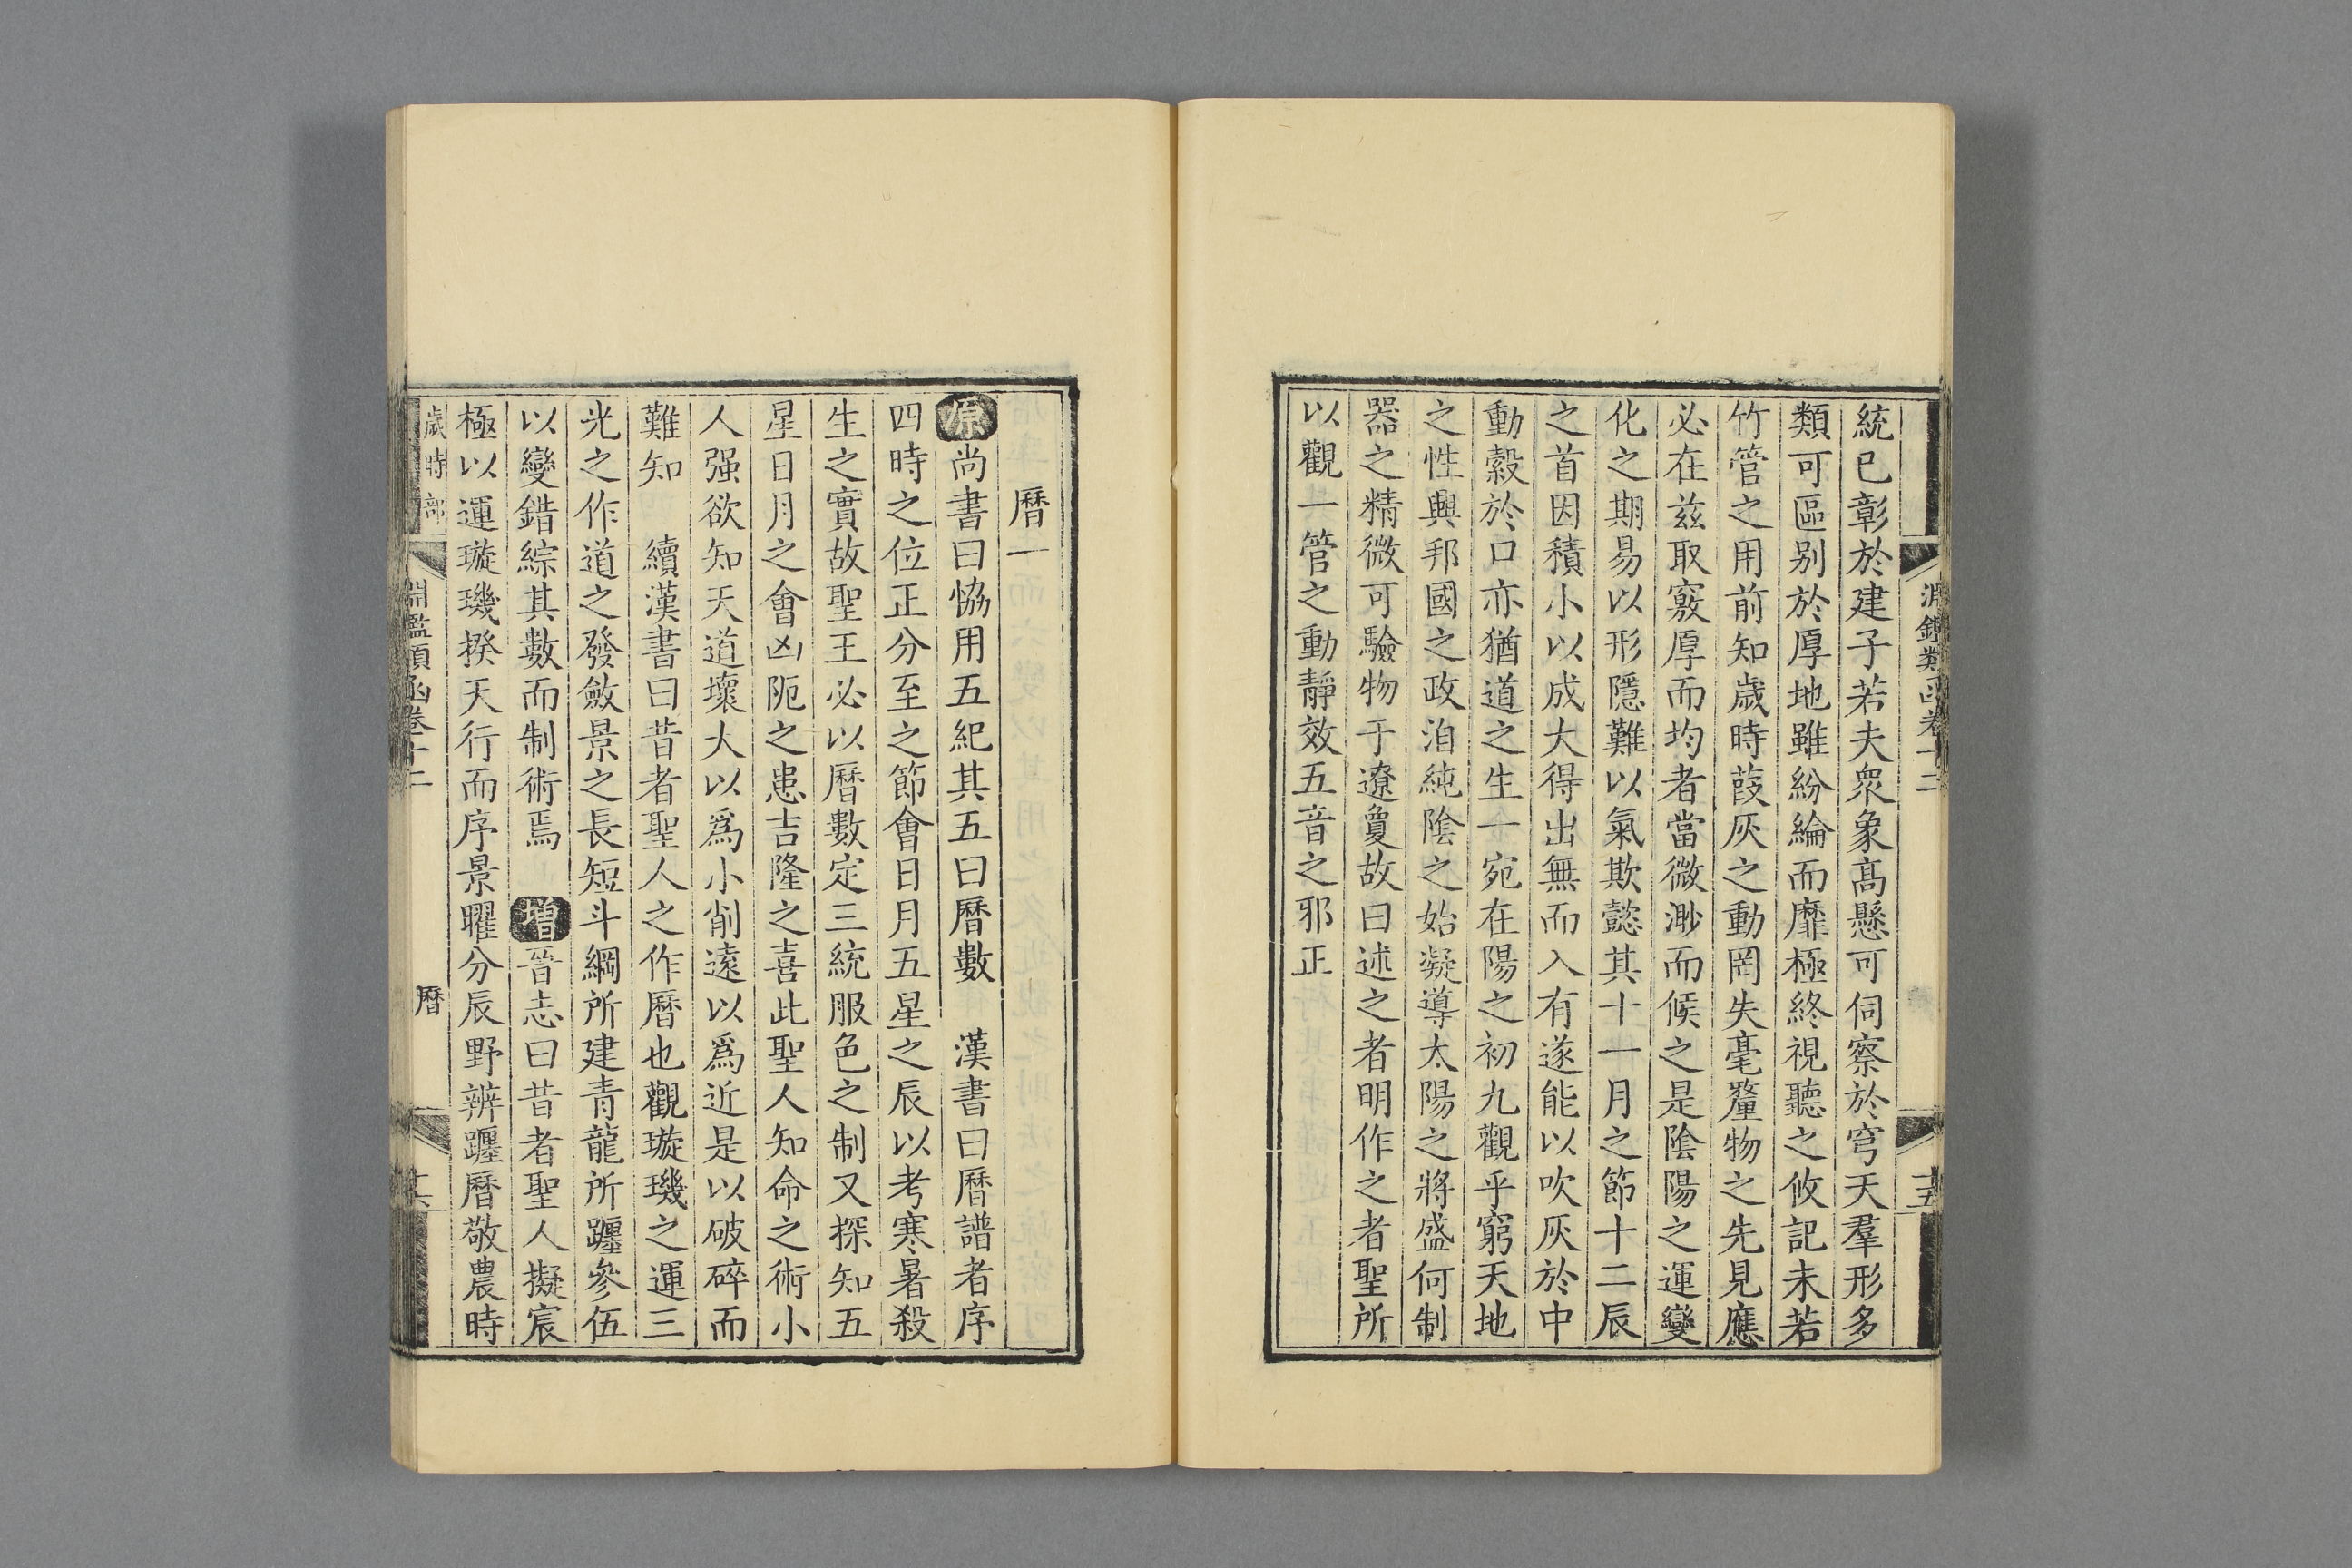 統已彰於建子若夫衆象高懸可伺察於穹天羣形多
類可區别於厚地雖紛綸而靡極終視聽之攸記未若
竹管之用前知歲時葭灰之動罔失毫釐物之先見應
必在兹取竅厚而均者當微渺而候之是陰陽之運變
化之期易以形隱難以氣欺懿其十一月之節十二辰
之首因積小以成大得出無而入有遂能以吹灰於中
動縠於口亦猶道之生一宛在陽之初九觀乎窮天地
之性興邦國之政洎純陰之始凝導太陽之將盛何制
器之精微可驗物于遼夐故曰述之者明作之者聖所
以觀一管之動靜效五音之邪正
淵鑑類函卷十二
十五
曆一
原尚書曰恊用五紀其五曰曆數 漢書曰曆譜者序
四時之位正分至之節會日月五星之辰以考寒暑殺
生之實故聖王必以曆數定三統服色之制又探知五
星日月之會凶阨之患吉隆之喜此聖人知命之術小
人强欲知天道壞大以爲小削遠以爲近是以破碎而
難知 續漢書曰昔者聖人之作曆也觀璇璣之運三
光之作道之發斂景之長短斗綱所建青龍所躔參伍
以變錯綜其數而制術焉 增晉志曰昔者聖人擬宸
極以運璇璣揆天行而序景曜分辰野辨躔曆敬農時
歲時部
淵鑑類函卷十二
曆
十六